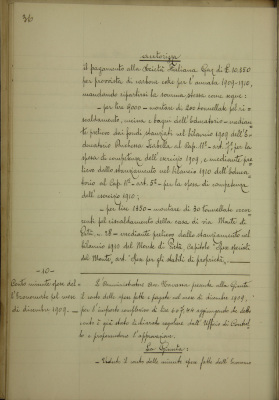 36
autorizza
il pagamento alla Società Italiana Gaz di £ 10.850
per provvista di carbone coke per l'annata 1909-1910,
mandando ripartirsi la somma stessa come segue:
- per lire 9000 - montare di 200 tonnellate pel ri-
scaldamento, cucina e bagni dell'Educatorio - median-
te prelievo dai fondi stanziati nel bilancio 1909 dell'E-
ducatorio Duchessa Isabella al Cap. 11° - art. 7° per la
spesa di competenza dell'esercizio 1909, e mediante pre-
lievo dallo stanziamento nel bilancio 1910 dell'Educa-
torio al Cap. 6° - art. 5° - per la spesa di competenza
dell'esercizio 1910;
- per lire 1850 - montare di 50 tonnellate occor-
renti pel riscaldamento della casa di via Monte di
Pietà n. 28 - mediante prelievo dallo stanziamento nel
bilancio 1910 del Monte di Pietà, Capitolo Spese speciali
del Monte, art. Spese per gli stabili di proprietà.
- 10 -
Conto minute spese del-
l'Economato pel mese
di dicembre 1909. -
L'Amministratore Avv. presenta alla Giunta
il conto delle spese fatte e pagate nel mese di dicembre 1909,
per l'importo complessivo di lire aggiungendo che detto
conto è già stato riveduto e regolare dall'Ufficio di Control-
lo e proponendone l'approvazione.
La Giunta:
- Veduto il conto delle minute spese fatte dall'Economo